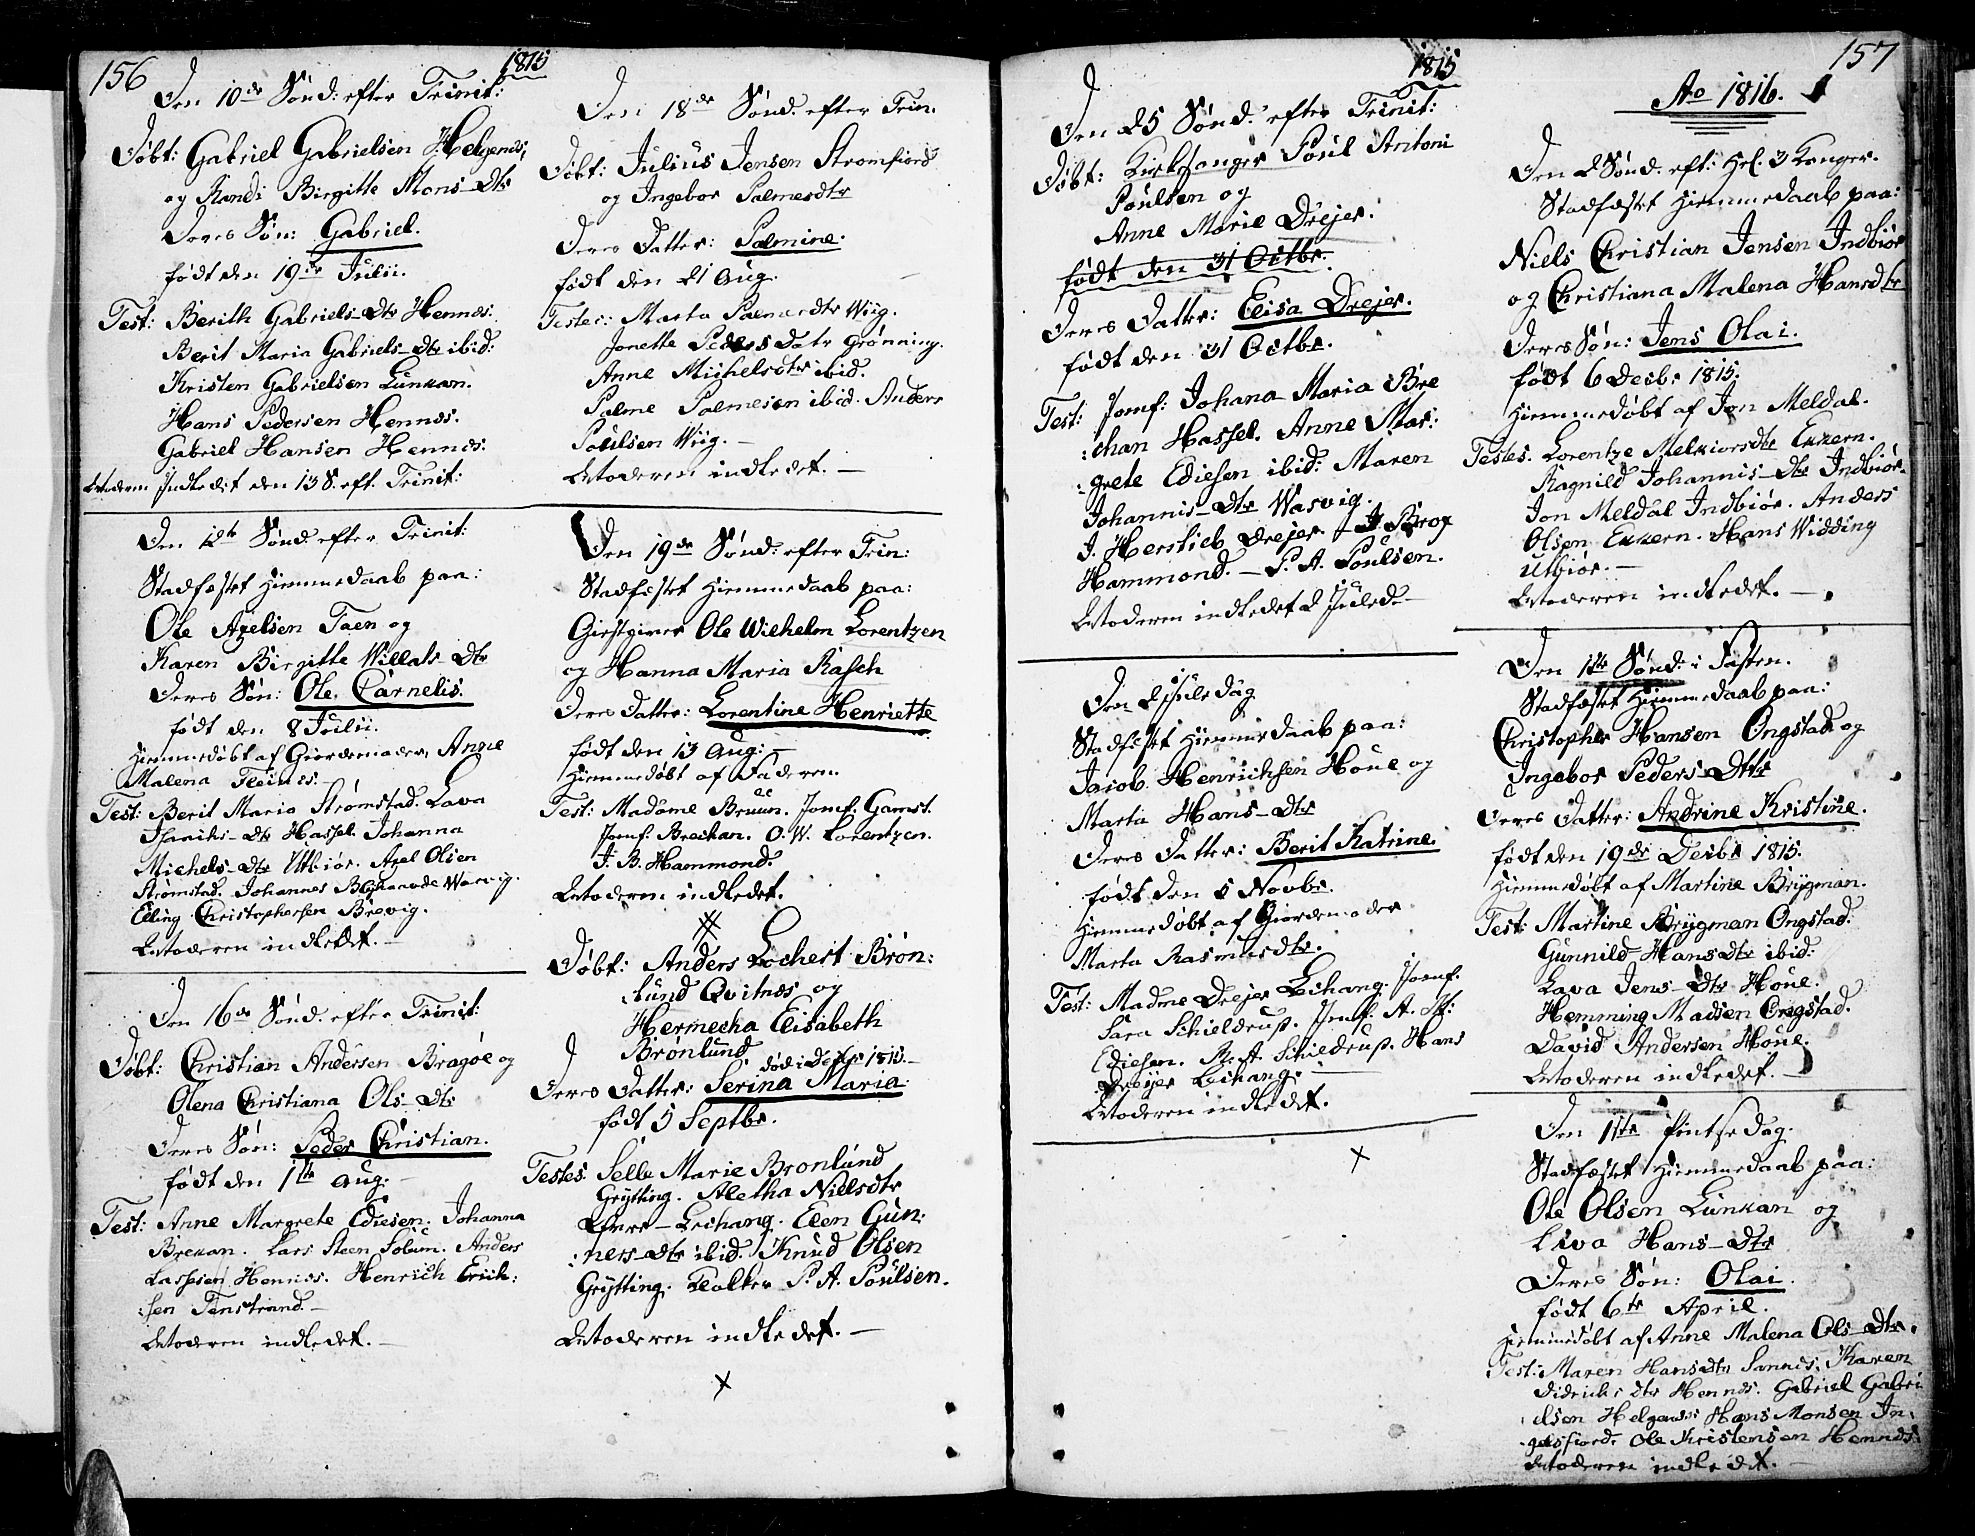 156
1815
Den 10de Sønd: efter Trinit:
Døbt: Gabriel Gabrielsen Helgenes,
og Randi Birgitte Mons-Dtr
Deres Søn: Gabriel.
født den 19de Julii.
Test: Berith Gabriels-Dtr Hennes.
Berit Maria Gabriels-Dtr ibid:
Kristen Gabrielsen Lunkan.
Hans Pedersen Hennes.
Gabriel Hansen Hennes:
Moderen Indledet den 13 S. eft. Trinit:
Den 12te Sønd: efter Trinit:
Stadfæstet Hiemmedaab paa:
Ole Axelsen Taen og
Karen Birgitte Willats-Dtr
Deres Søn: Ole Carnelis.
født den 8 Julii:
Hiemmedøbt af Giordemoder, Anne
Malena Fleines.
Test: Berit Maria Strømstad. Lava
Hassel. Johanna
Michels-Dtr Utbiør. Axel Olsen
Strømstad. Johannes Wasvig.
Elling Christophersen Brevig.
Moderen indledet.
Den 16de Sønd: efter Trinit:
Døbt: Christian Andersen Bragøe og
Olena Christiana Ols-Dtr
Deres Søn: Peder Christian.
født den 1te Aug:
Test: Anne Margrete Ediesen. Johanna
Brekan. Lars Steen Solum. Anders
Lassesen Hennes. Henrich Erich:
:sen Tenstrand.
Moderen indledet.
Den 18de Sønd: efter Trin.
Døbt: Julius Jensen Strømfiord
og Ingebor Palmesdtr
Deres Datter: Palmine.
født den 21 Aug.
Testes: Marta Palmesdtr Wiig.
Jonette Peders Datr Grønning.
Anne Michelsdtr ibid.
Palme Palmesen ibid. Anders
Poulsen Wiig.
Moderen indledet.
Den 19de Sønd: efter Trin:
Stadfæstet Hiemmedaab paa:
Giestgiver Ole Wilhelm Lorentzen
og Hanna Maria Rasch
Deres Datter: Lorentine Henriette
født den 13 Aug:
Hiemmedøbt af Faderen.
Test: Madame Bruun. Jomf. Gamst.
Jomf. Brechan. O. W. Lorentzen.
J. B. Hammond.
Moderen indledet.
Døbt: Anders Lochert Brøn:
:lund Qvitnes og
Hermecha Elisabeth
Brønlund.
Deres Datter: Serina Maria:
født 5 Septbr.
Testes: Selle Marie Bronlund
Grytting. Aletha Nielsdtr
Lechang. Elen Gun:
:ners-Dtr ibid. Knud Olsen
Grytting. Klokker P. A. Poulsen.
Moderen indledet.
157
1815
Den 25 Sønd: efter Trinit:
Døbt: Kirkesanger Poul Antoni
Poulsen og
Anne Marie Drejer.
født den 31 Octbr.
Deres Datter: Elisa Drejer.
født den 31 Octbr.
Test: Jomf: Johana Maria Bre
:chan Hassel. Anne Mar:
:grete Ediesen ibid: Maren
Johannis-Dtr Wasvig.
J. Herslieb Drejer. J. Brox
Hammond. P. A. Poulsen.
Moderen indledet 2 Juled.
Den 2 Juledag
Stadfæstet Hiemmedaab paa:
Jacob Henrichsen Houe og
Marta Hans-Dtr
Deres Datter: Berit Katrine.
født den 5 Novbr.
Hiemmedøbt af Giordemoder
Marta Rasmusdtr.
Test: Madme Drejer Lechang. Jomf.
Sara Schieldrup. Jomf. A. M:
Ediesen. Schildrup. Hans
Drejer Lechang.
Moderen indledet.
Ao 1816.
Den 2 Sønd. eft: Hel. 3 Konger.
Stadfæstet Hiemmedaab paa:
Niels Christian Jensen Indbiør
og Christiana Malena Hansdtr
Deres Søn: Jens Olai.
født 6 Decbr 1815.
Hiemmedøbt af Jon Meldal.
Testes. Lorentze Melkiorsdtr Exern.
Ragnild Johannis-Dtr Indbiør.
Jon Meldal Indbiør. Anders
Olsen Exern. Hans Widding
Utbiør.
Moderen indledet.
Den 1ste Sønd: i Fasten.
Stadfæstet Hiemmedaab paa:
Christopher Hansen Ongstad og
Ingebor Peders-Dtr
Deres Datter: Andrine Kristine.
født den 19de Decbr 1815.
Hiemmedøbt af Martine Brygman.
Test: Martine Brygman Ongstad.
Gunnild Hansdtr ibid:
Lava Jens-Dtr Houe.
Hemming Madsen Ongstad.
David Andersen Houe.
Moderen indledet.
Den 1ste Pintsedag.
Stadfæstet Hiemmedaab paa:
Ole Olsen Lunkan og
Liva Hans-Dtr
Deres Søn: Olai.
født 6te April.
Hiemmedøbt af Anne Malena Ols-Dtr.
Test: Maren Hansdtr Sannes. Karen
Didrichs Dtr Hennes. Gabriel Gabri
elsen Helgenes Hans Monsen In:
:gelsfiord. Ole Kristensen Hennes.
Moderen indledet.